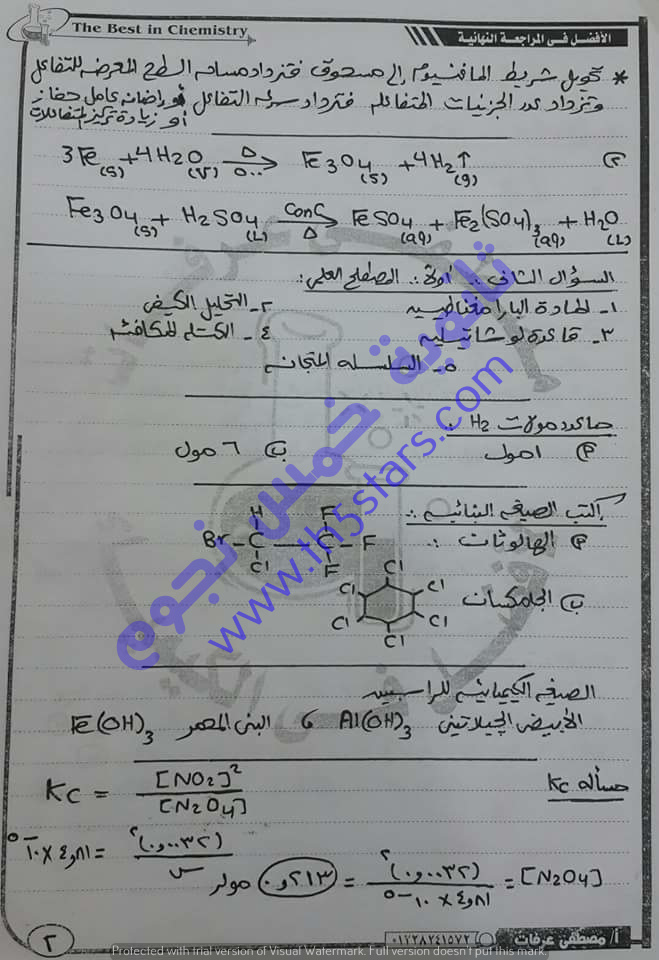 The Best in Chemistry
الأفضل فى المراجعة النهائية
* تحويل شريط الماغنسيوم إلى مسحوق فتزداد مساحة السطح المعرض للتفاعل
وتزداد عدد الجزيئات المتفاعلة فتزداد سرعة التفاعل أو إضافة عامل حفاز
أو زيادة تركيز المتفاعلات
3Fe(s) + 4H2O(v) Δ ٥٠٠ → Fe3O4(s) + 4H2↑(g)
Fe3O4(s) + H2SO4(L) ConC Δ → FeSO4(aq) + Fe2(SO4)3(aq) + H2O(L)
السؤال الثانى : أولاً : المصطلح العلمى :
١- المادة البارامغناطيسية ٢- التحليل الكيفى
٣- قاعدة لوشاتيليه ٤- الكتلة المكافئة
٥- السلسلة المتجانسة
ما عدد مولات H2 :
١ مول ب ٦ مول
اكتب الصيغة البنائية :
الهالوثان :
H F
Br - C - C - F
Cl F
ب الجامكسان
Cl Cl Cl Cl Cl Cl
الصيغة الكيميائية للراسب
الأبيض الجيلاتينى Al(OH)3 ، البنى المحمر Fe(OH)3
مسألة Kc
Kc = [NO2]² / [N2O4]
(٠,٠٠٣٢)² / س = ٤,٨١ × ١٠⁻٥
[N2O4] = (٠,٠٠٣٢)² / ٤,٨١ × ١٠⁻٥ = ٠,٢١٣ مولر
ثانوية خمس نجوم
www.th5stars.com
أ/ مصطفى عرفات
٠١٢٢٨٢٤١٥٧٢
٢
Protected with trial version of Visual Watermark. Full version doesn't put this mark.